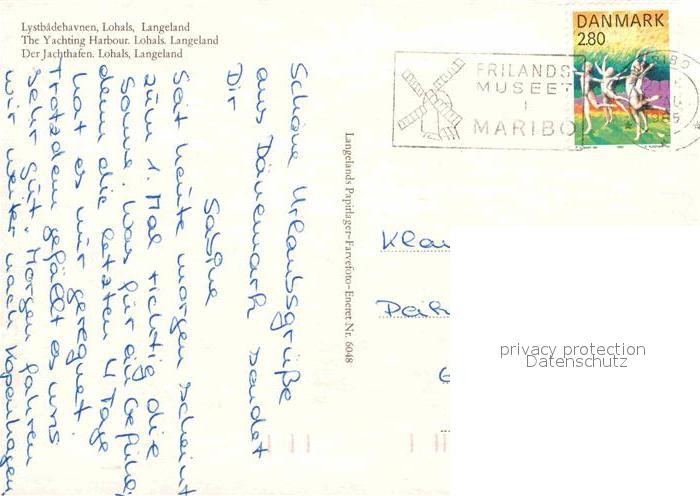 Lystbådehavnen, Lohals, Langeland
The Yachting Harbour. Lohals. Langeland
Der Jachthafen. Lohals, Langeland
DANMARK
2.80
FRILANDS
MUSEET
I
MARIBO
1985
Schöne Urlaubsgrüße
aus Dänemark sendet
Dir
Sabine
Seit heute morgen scheint
zum 1. Mal richtig die
Sonne. Was für ein Gefühl,
denn die letzten 4 Tage
hat es nur geregnet.
Trotzdem gefällt es uns
sehr gut. Morgen fahren
wir weiter nach Kopenhagen
Langelands Papirlager-Farvefoto-Eneret Nr. 6048
Klau
privacy protection
Datenschutz